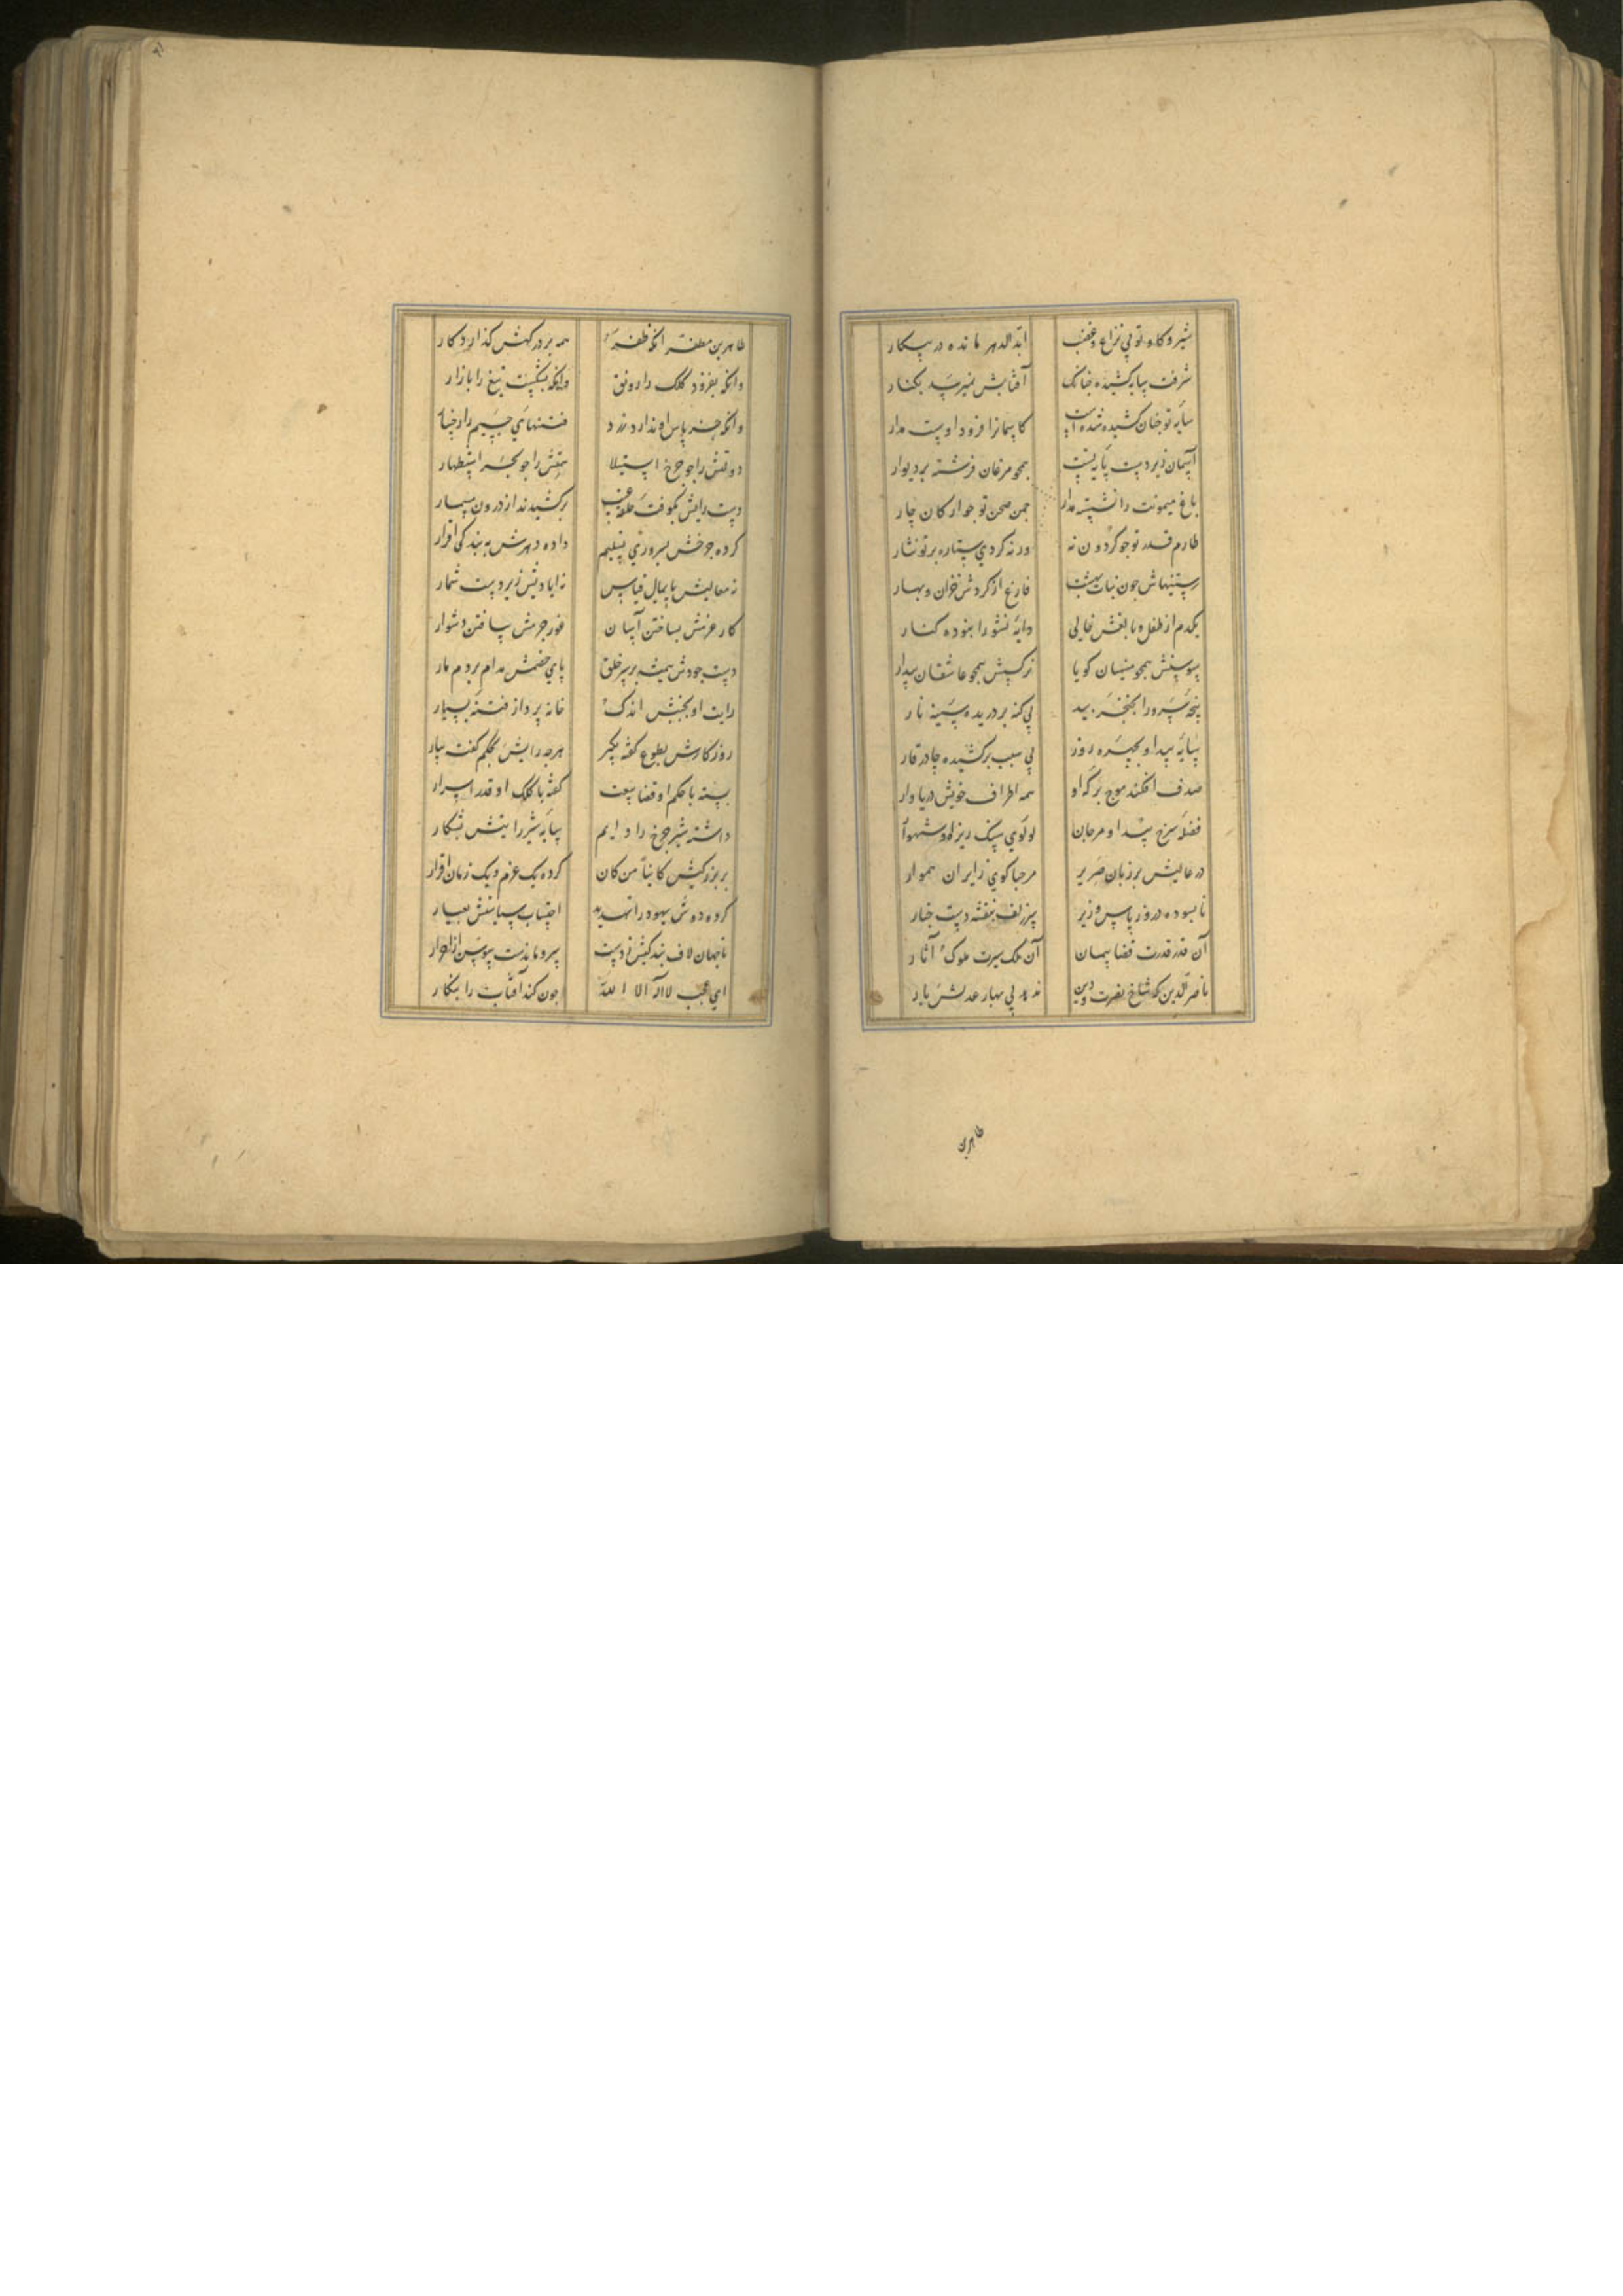 شیر و کاو تو بی نزاع و غضب ابد الدهر مانده در پیکار
شرفت پایه کشیده چنانک آفتابش نمیرسد بکنار
سایه تو چنان کشیده شدست کاسمانرا فرود اوست مدار
آسمان زیر دست پایه تست همچو مرغان فرشته بر دیوار
باغ میمونت را نشسته مدار چمن صحن تو جو ارکان چار
طارم قدر تو جو کردون نه ور نه کردی ستاره بر تو نثار
رستنیهاش جون نبات بهشت فارغ از کردش خزان و بهار
یکدم از طفل و بالغش خالی دایه نشو را نبوده کنار
سوسنش همجو منسیان کویا نرکسش همجو عاشقان بیدار
پنجه سرو را بخنجر بید بی کنه بر دریده سینه نار
سایه بید او بچهره روز بی سبب برکشیده چادر قار
صدف افکند موج برکه او همه اطراف خویش دریاوار
فضله سرخ بید او مرجان لولوی سنک ریزه او شهوار
در عالیش بر زبان صریر مرحبا کوی زایران هموار
ناسوده در وز پاس وزیر سر زلف بنفشه دست چنار
آن قدر قدرت قضا پیمان آن ملک سیرت ملوک آثار
ناصر الدین که شاخ نصرت و دین ندهد بی بهار عدلش بار
طاهر بن
طاهر بن مظفر انکه ظفر همه بر درکهش کذارد کار
وانکه بفزود کلک را رونق وانکه بشکست تیغ را بازار
وانکه جز پاس او ندارد زرد فتنهای
دولتش را جو چرخ استیلا همتش را جو بحر استظهار
دست رایش بکوفت حلقه غیب برکشیدند از درون مسمار
کرده جرخش بسروری تسلیم داده دهرش به بندکی اقرار
نه معالیش پایمال قیاس نه ایادیش زیر دست شمار
کار عزمش بساختن آسان غور حزمش بیافتن دشوار
دست جودش همیشه بر سر خلق پای خصمش مدام بر دم مار
رایت او بجنبش اندک خانه پرداز فتنه بسیار
روزکارش بطوع کفته بکیر هرجه رایش بحکم کفت بیار
بسته با حکم او قضا بیعت کفته با کلک او قدر اسرار
داشته شیر جرخ را دایم سایه شیر رایتش بشکار
بر بزرکیش کاینا من کان کرده یک عزم و یک زبان اقرار
کرده دوش یهود را تهدید احتساب سیاستش بعیار
تا جهان لاف بندکیش زدست سرو مانند سوسن از احرار
ای عجب لا اله الا الله جون کند آفتاب را بنکار